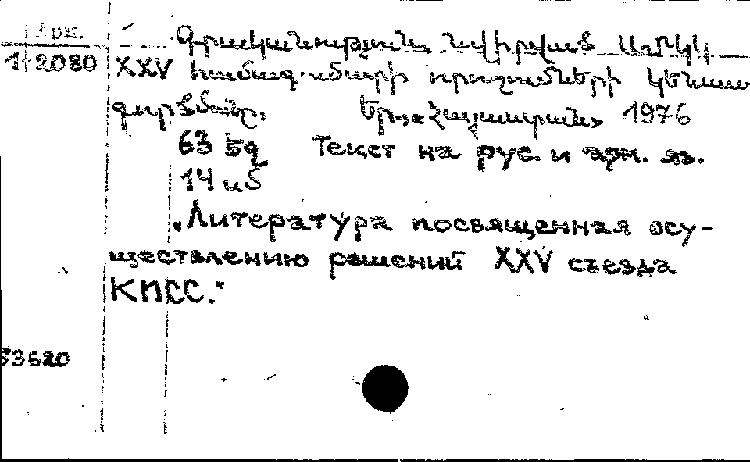 Арм.
1-2080
Գրականություն նվիրված ՍՄԿԿ
XXV համագումարի որոշումների կենսա-
գործմանը. Եր., «Հայաստան» 1976
63 էջ Текст на рус. и арм. яз.
14 սմ
„Литература посвященная осу-
ществлению решений XXV съезда
КПСС."
53620